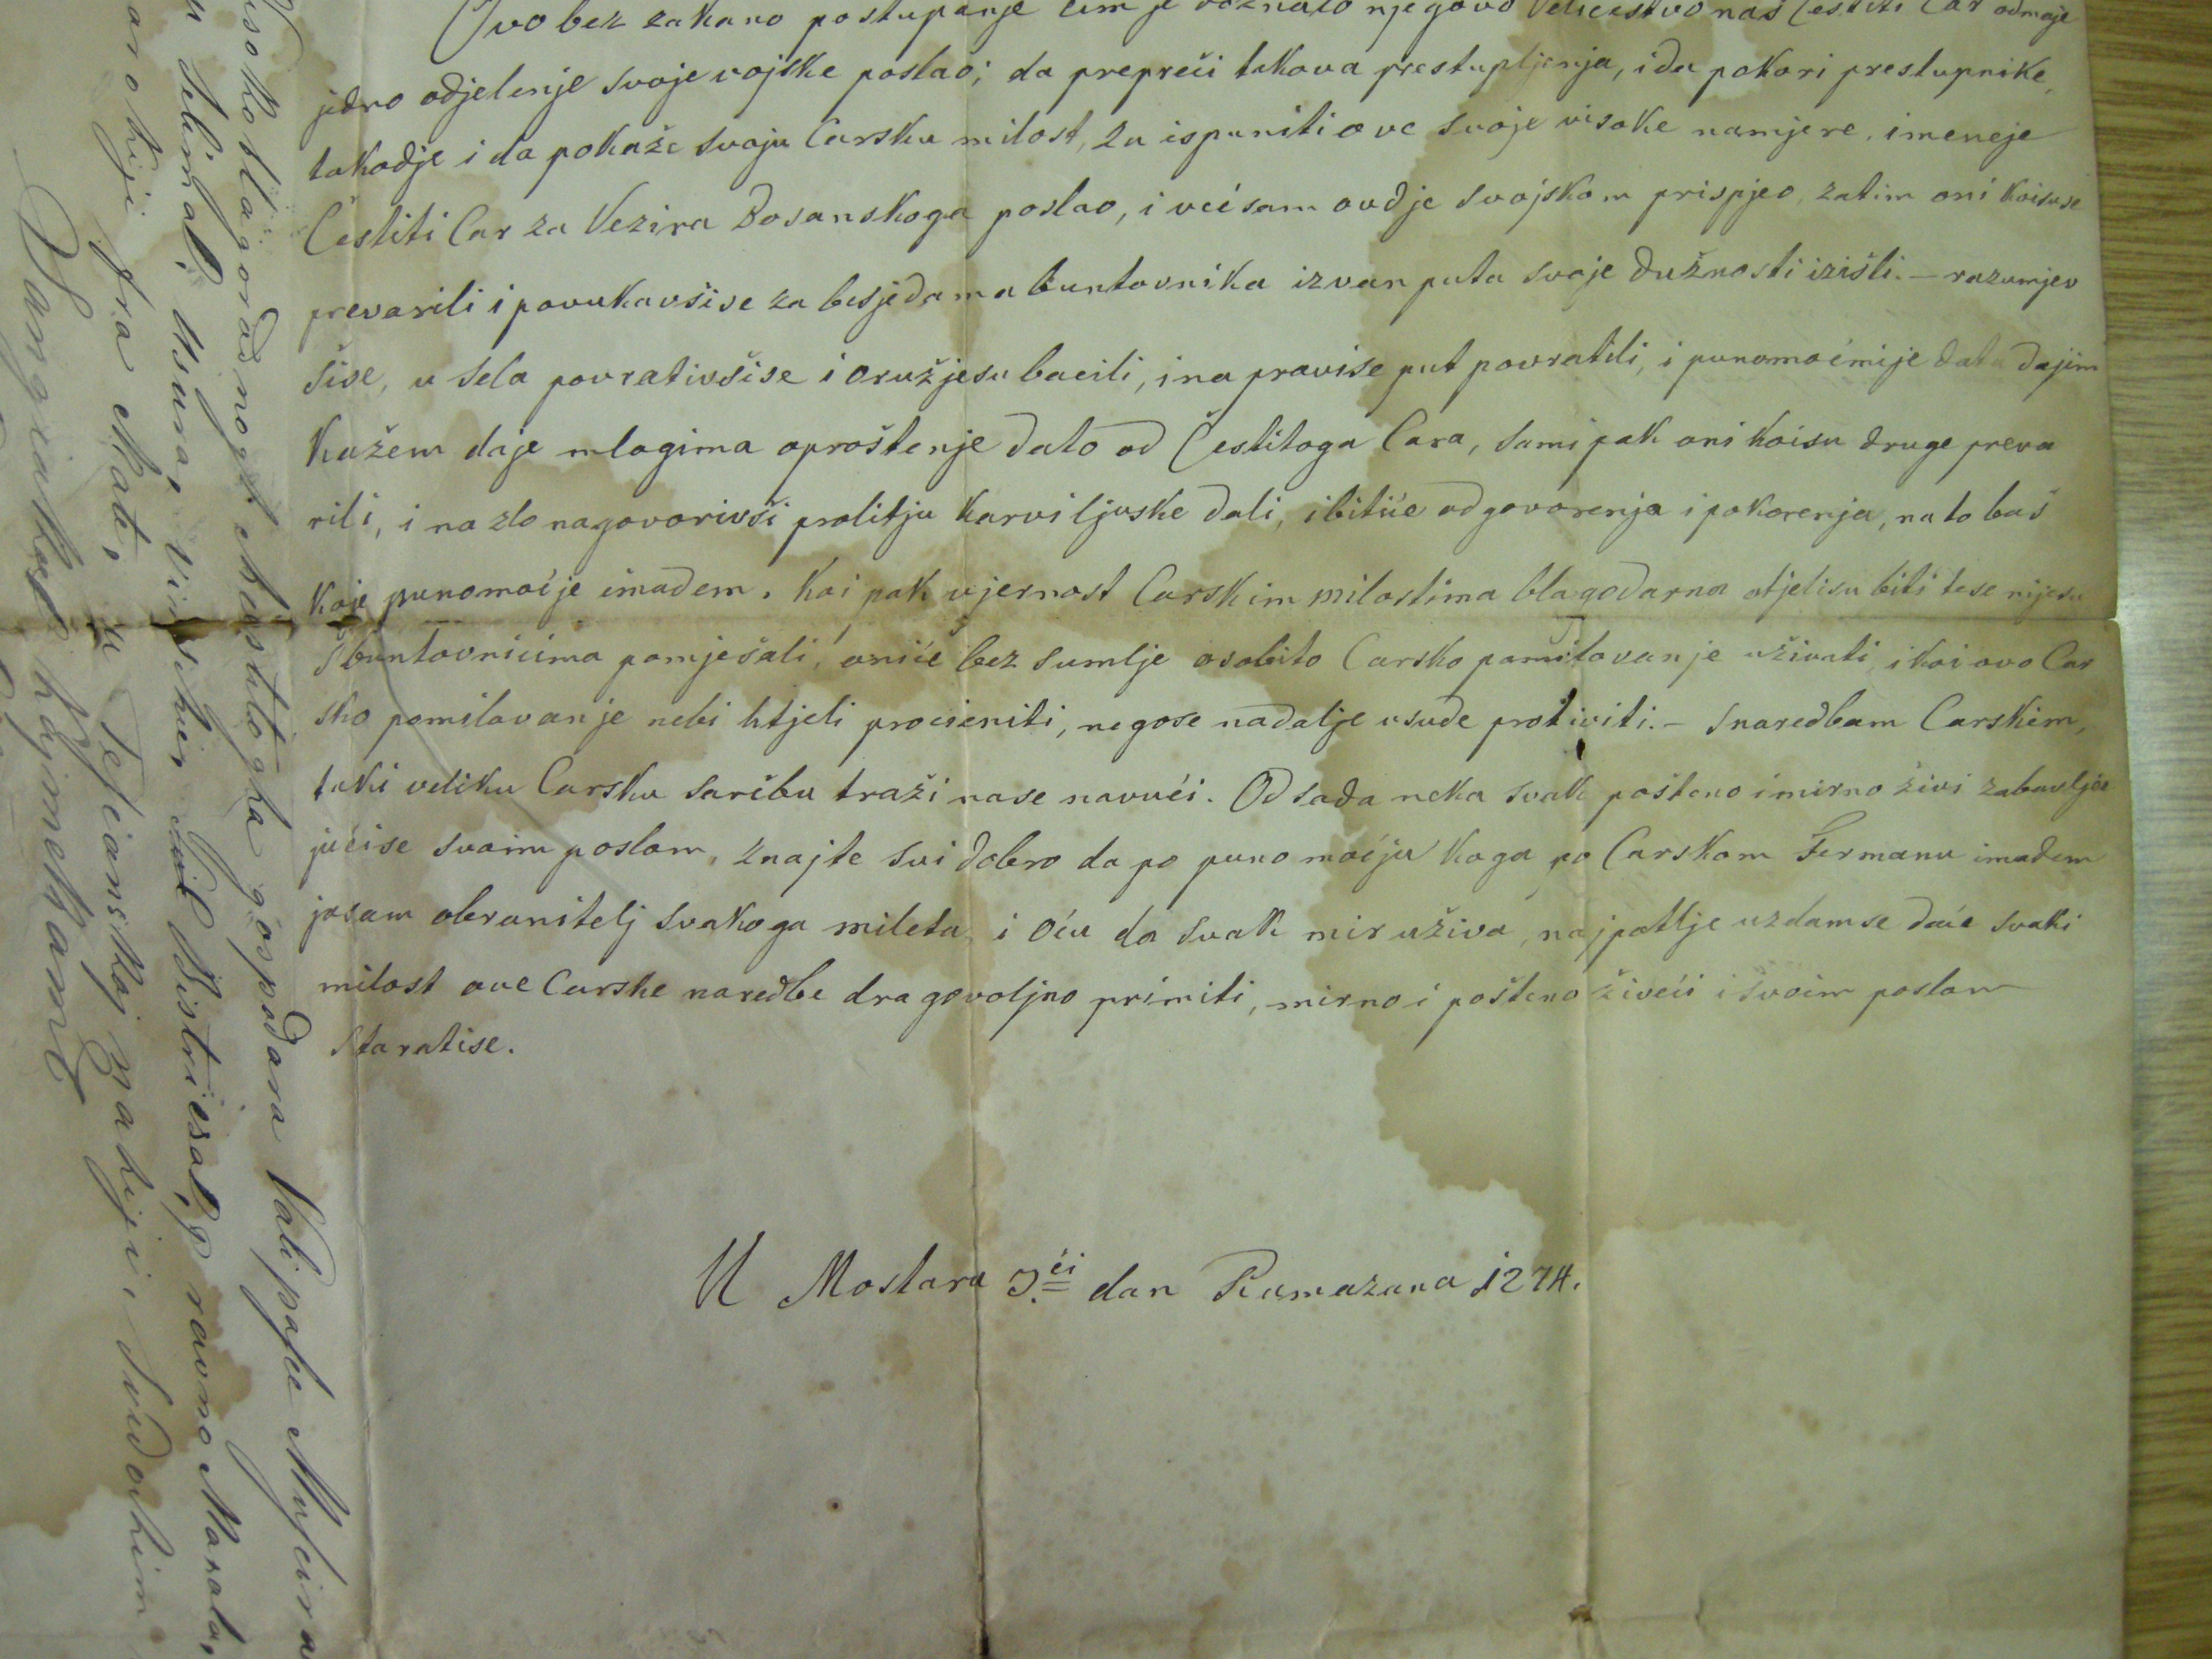 Ovo bez zakano postupanje čim je doznalo njegovo Veličestvo naš Čestiti Car odmaje
jedno odjelenje svoje vojske poslao; da prepreči takova prestupljenja, i da pokori prestupnike,
takodje i da pokaže svoju Carsku milost, za ispuniti ove svoje visoke namjere, imeneje
Čestiti Car za Vezira Bosanskoga poslao, i već sam ovdje s vojskom prispjeo, zatim oni koisuse
prevarili i povukavšise za besjedama buntovnika izvan puta svoje dužnosti izišli. — razumjev
šise, u sela povrativšise i oružjesu bacili, i na pravise put povratili, i punomoć mije data dajim
kažem daje mlogima oproštenje dato od Čestitoga Cara, sami pak oni koisu druge preva
rili, i na zlo nagovorivši prolitju karvi ljuske dali, i bitiće odgovorenja i pokorenja, na to baš
koje punomoćje imadem. Koi pak vjernost Carskim milostima blagodarna otjelisu biti tese nijesu
s buntovnicima pomješali, oniće bez sumlje osobito Carsko pomilovanje uživati, i koi ovo Car
sko pomilovanje nebi htjeli procieniti, negose nadalje usude protiviti. — s naredbam Carskim,
taki veliku Carsku sarčbu traži nase navući. Od sada neka svak pošteno i mirno živi zabavlja
jućise svoim poslom, znajte svi dobro da po puno moćju koga po Carskom Fermanu imadem
jasam obranitelj svakoga mileta, i oću da svak mir uživa, najpotlje uzdamse daće svaki
milost ove Carske naredbe dragovoljno primiti, mirno i pošteno živeći i svoim poslom
staratise.
U Mostaru 3.ći dan Ramazana 1274.
isoko blagorodnoga i čestitoga gospodara Vali paše Mušira
Bistričaka, ravno Marala,
fra Mate, u Tešjanskoj nahiji, svi dohim